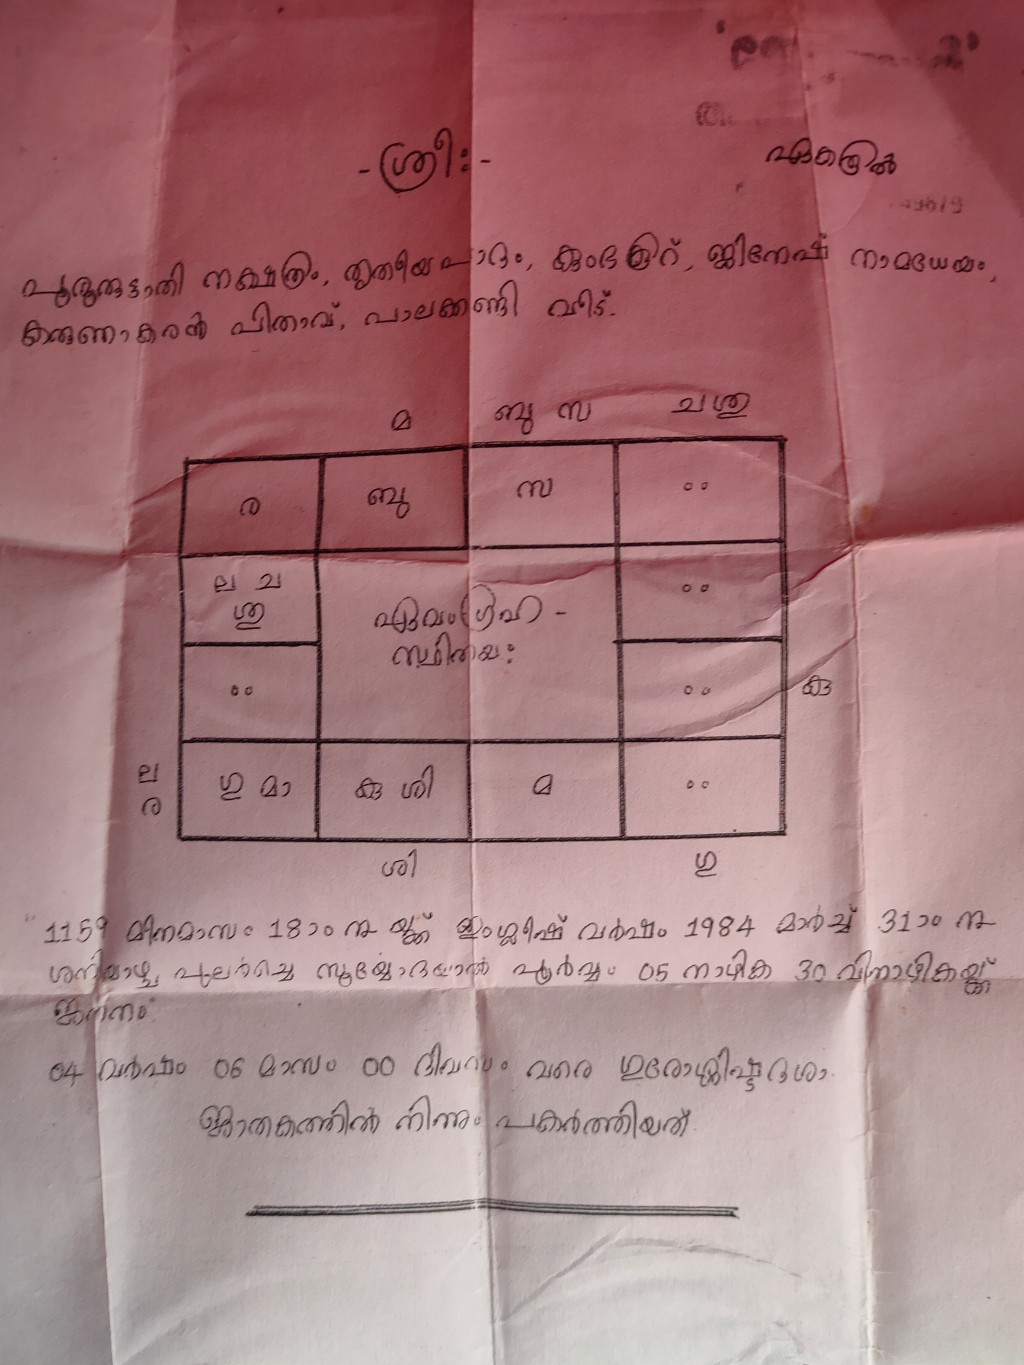 -ശ്രീ:-
പൂരൂരുട്ടാതി നക്ഷത്രം, തൃതീയ പാദം, കുംഭക്കൂറ്, ജിനേഷ് നാമധേയം,
കരുണാകരൻ പിതാവ്, പാലക്കണ്ടി വീട്.
മ ബു സ ച ശു
ര ബു സ ം ം
ല ച
ശു
ഏവംഗ്രഹ -
സ്ഥിതയ:
കു
ല
ര
ഗു മാ കു ശി മ
ശി ഗു
1159 മീനമാസം 18ാം നു യ്ക്ക് ഇംഗ്ലീഷ് വർഷം 1984 മാർച്ച് 31ാം നു
ശനിയാഴ്ച പുലർച്ചെ സൂര്യോദയാൽ പൂർവ്വം 05 നാഴിക 30 വിനാഴികയ്ക്ക്
ജനനം.
04 വർഷം 06 മാസം 00 ദിവസം വരെ ഗുരോശ്ശിഷ്ടദശാ.
ജാതകത്തിൽ നിന്നും പകർത്തിയത്.